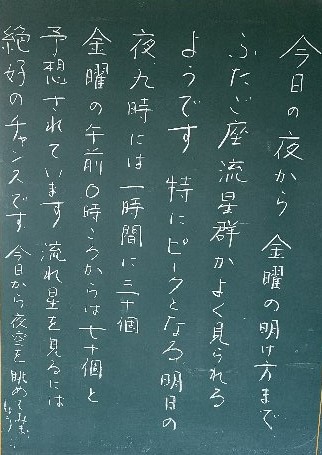 今日の夜から 金曜の明け方まで
ふたご座流星群がよく見られる
ようです 特にピークとなる明日の
夜九時には一時間に三十個
金曜の午前0時ごろからは七十個と
予想されています 流れ星を見るには
絶好のチャンスです 今日から夜空を眺めてみましょう